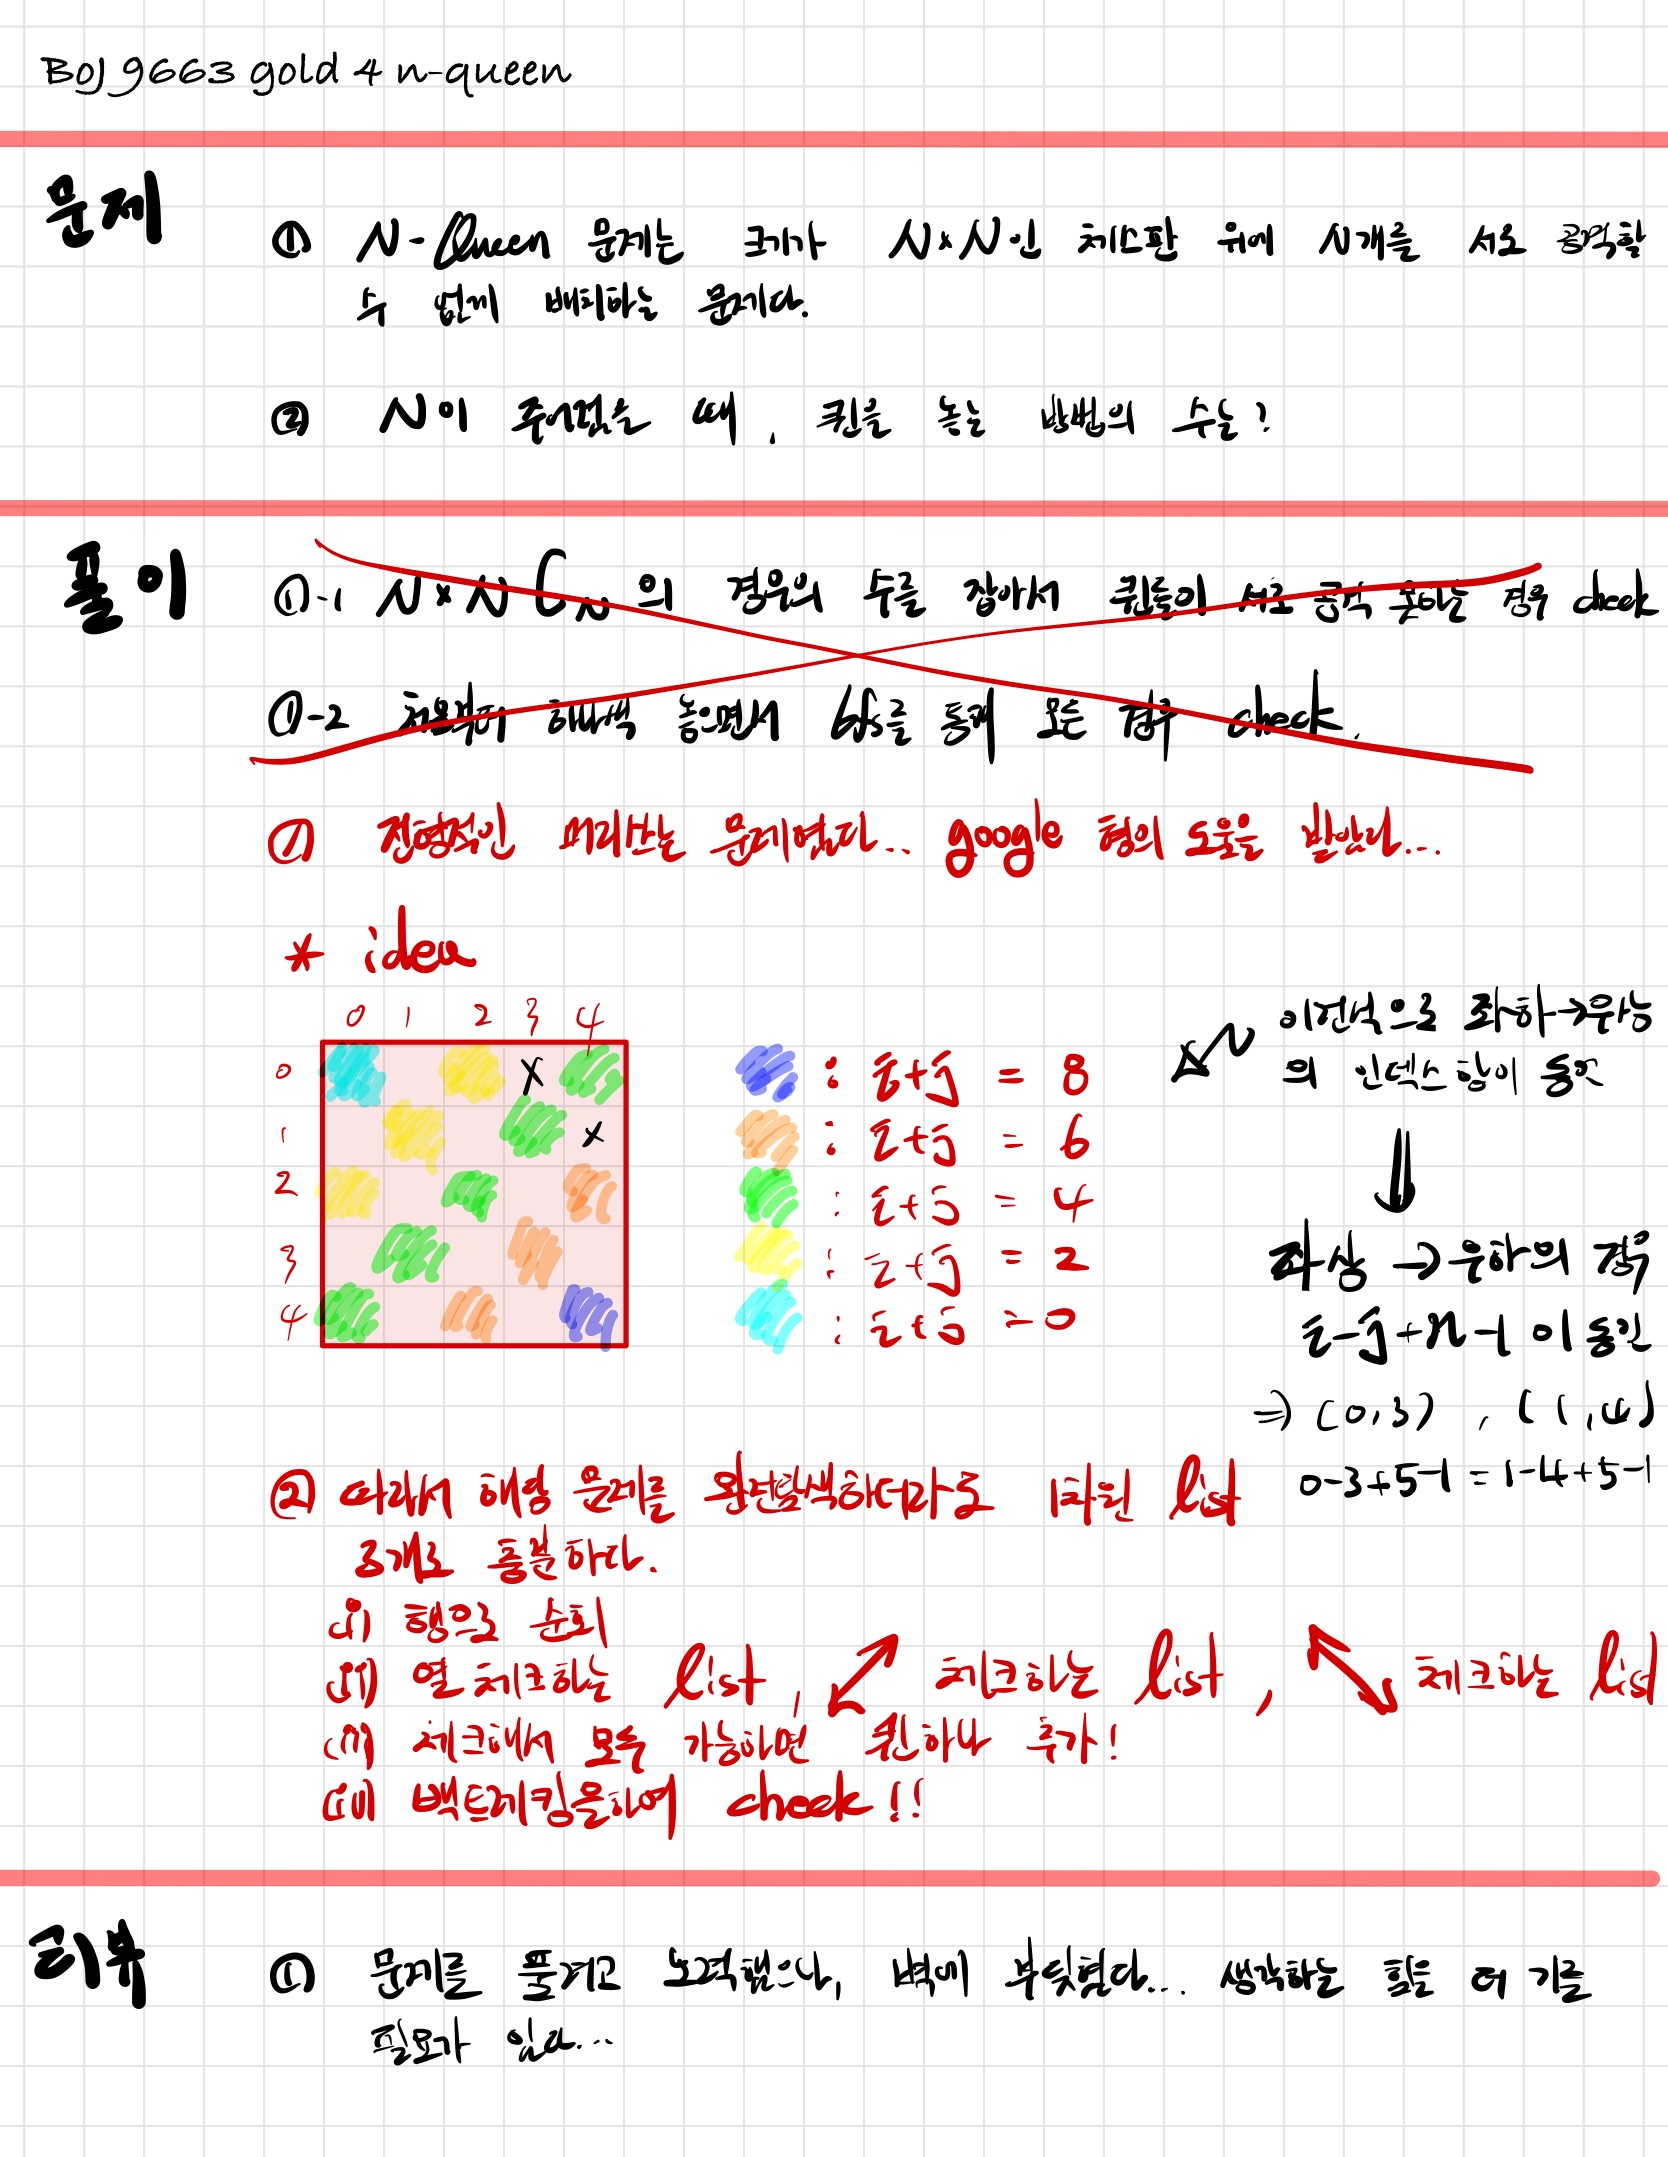 BOJ 9663 gold 4 n-queen
문제
① N-Queen 문제는 크기가 N×N인 체스판 위에 N개를 서로 공격할
수 없게 배치하는 문제다.
② N이 주어졌을 때, 퀸을 놓는 방법의 수는?
풀이
①-1 N×N C N 의 경우의 수를 잡아서 퀸들이 서로 공격 못하는 경우 check
①-2 처음부터 하나씩 놓으면서 bfs를 통해 모든 경우 check.
① 전형적인 머리쓰는 문제였다.. google 형의 도움을 받았다...
* idea
0 1 2 3 4
0 X
1 x
2
3
4
: i+j = 8
: i+j = 6
: i+j = 4
: i+j = 2
: i+j = 0
이런식으로 좌하→우상
의 인덱스 합이 동일
좌상 → 우하의 경우
i-j+n-1 이 동일
⇒ (0,3), (1,4)
0-3+5-1 = 1-4+5-1
② 따라서 해당 문제를 완전탐색하더라도 1차원 list
3개로 충분하다.
(i) 행으로 순회
(ii) 열 체크하는 list, ↗↙ 체크하는 list, ↖↘ 체크하는 list
(iii) 체크해서 모두 가능하면 퀸하나 추가!
(iiii) 백트레킹을하여 check!!
리뷰
① 문제를 풀려고 노력했으나, 벽에 부딪혔다... 생각하는 힘을 더 기를
필요가 있다...